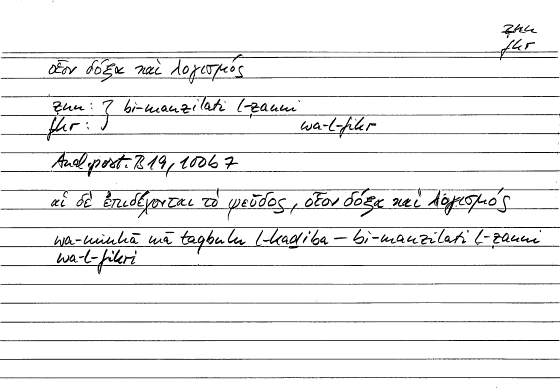 ẓnn
fkr
οἷον δόξα καὶ λογισμός
ẓnn : } bi-manzilati l-ẓanni
fkr : wa-l-fikr
Anal. post. B 19, 100b 7
αἱ δὲ ἐπιδέχονται τὸ ψεῦδος, οἷον δόξα καὶ λογισμός
wa-minhā mā taqbalu l-kaḏiba – bi-manzilati l-ẓanni
wa-l-fikri